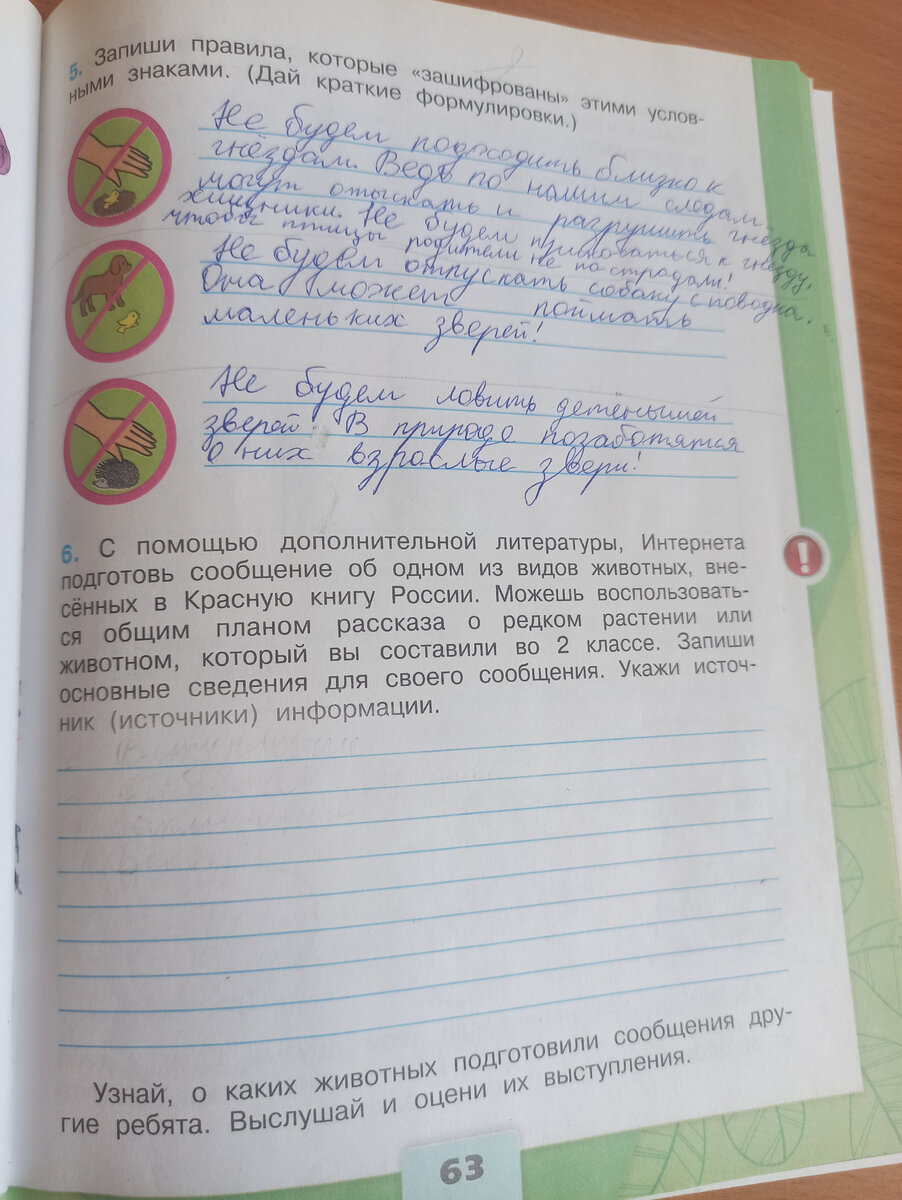 5. Запиши правила, которые «зашифрованы» этими услов-
ными знаками. (Дай краткие формулировки.)
Не будем подходить близко к
гнёздам. Ведь по нашим следам
могут отыскать и разрушить гнёзда
хищники. Не будем прикасаться к гнезду,
чтобы птицы родители не пострадали!
Не будем отпускать собаку с поводка.
Она может поймать
маленьких зверей!
Не будем ловить детёнышей
зверей! В природе позаботятся
о них взрослые звери!
6. С помощью дополнительной литературы, Интернета
подготовь сообщение об одном из видов животных, вне-
сённых в Красную книгу России. Можешь воспользовать-
ся общим планом рассказа о редком растении или
животном, который вы составили во 2 классе. Запиши
основные сведения для своего сообщения. Укажи источ-
ник (источники) информации.
Узнай, о каких животных подготовили сообщения дру-
гие ребята. Выслушай и оцени их выступления.
63